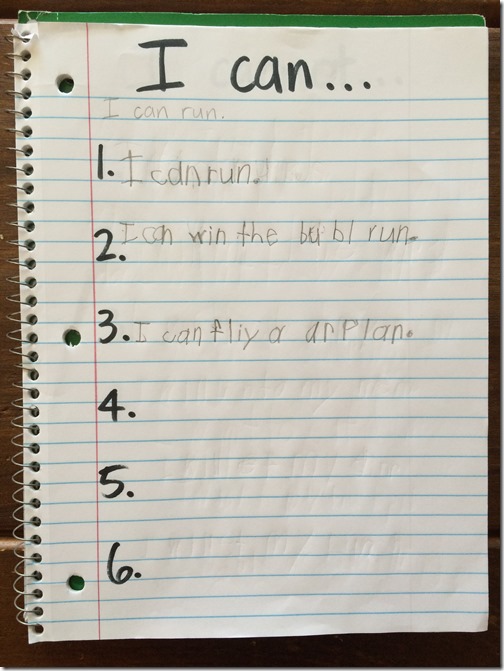 I can...
I can run.
1. I can run.
2. I can win the bubl run.
3. I can fliy a arplan.
4.
5.
6.